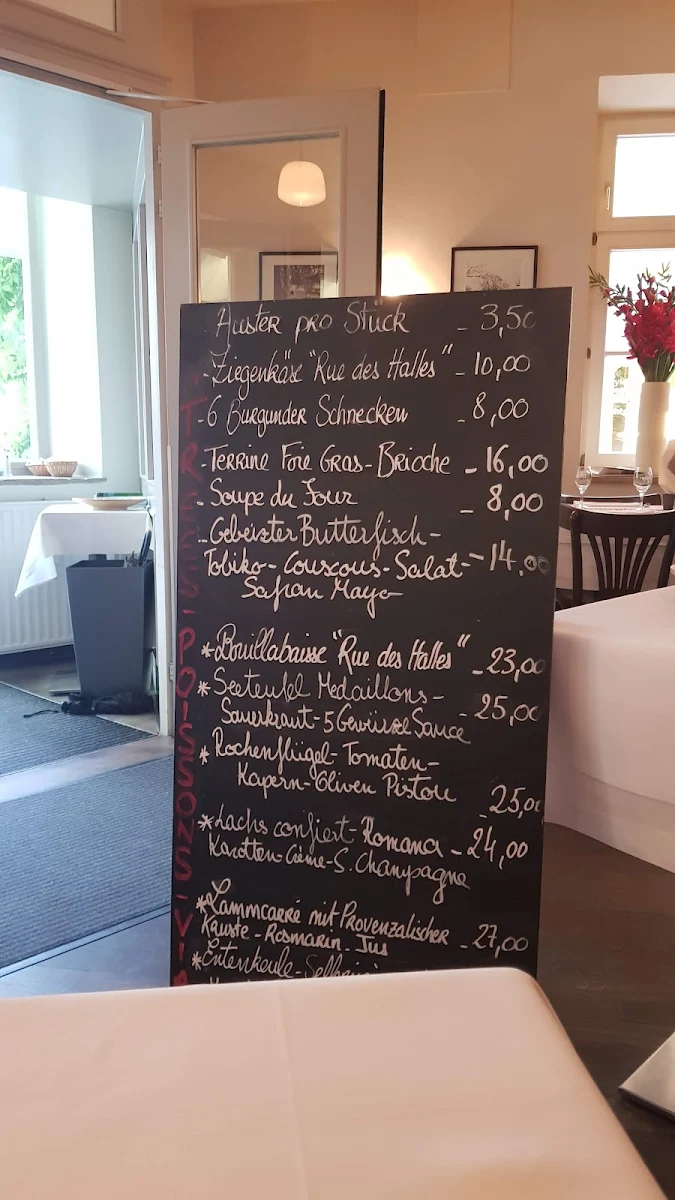 Auster pro Stück - 3,50
- Ziegenkäse "Rue des Halles" - 10,00
- 6 Burgunder Schnecken - 8,00
- Terrine Foie Gras - Brioche - 16,00
- Soupe du Jour - 8,00
- Gebeizter Butterfisch -
Tobiko - Couscous - Salat - 14,00
Safran Mayo
* Bouillabaisse "Rue des Halles" - 23,00
* Seeteufel Medaillons -
Sauerkraut - 5 Gewürze Sauce - 25,00
* Rochenflügel - Tomaten -
Kapern - Oliven Pistou - 25,00
* Lachs confiert - Romana - 24,00
Karotten - Crème - S. Champagne
* Lammcarré mit Provenzalischer
Kruste - Rosmarin - Jus - 27,00
* Entenkeule -
TREES - POISSONS - VIA